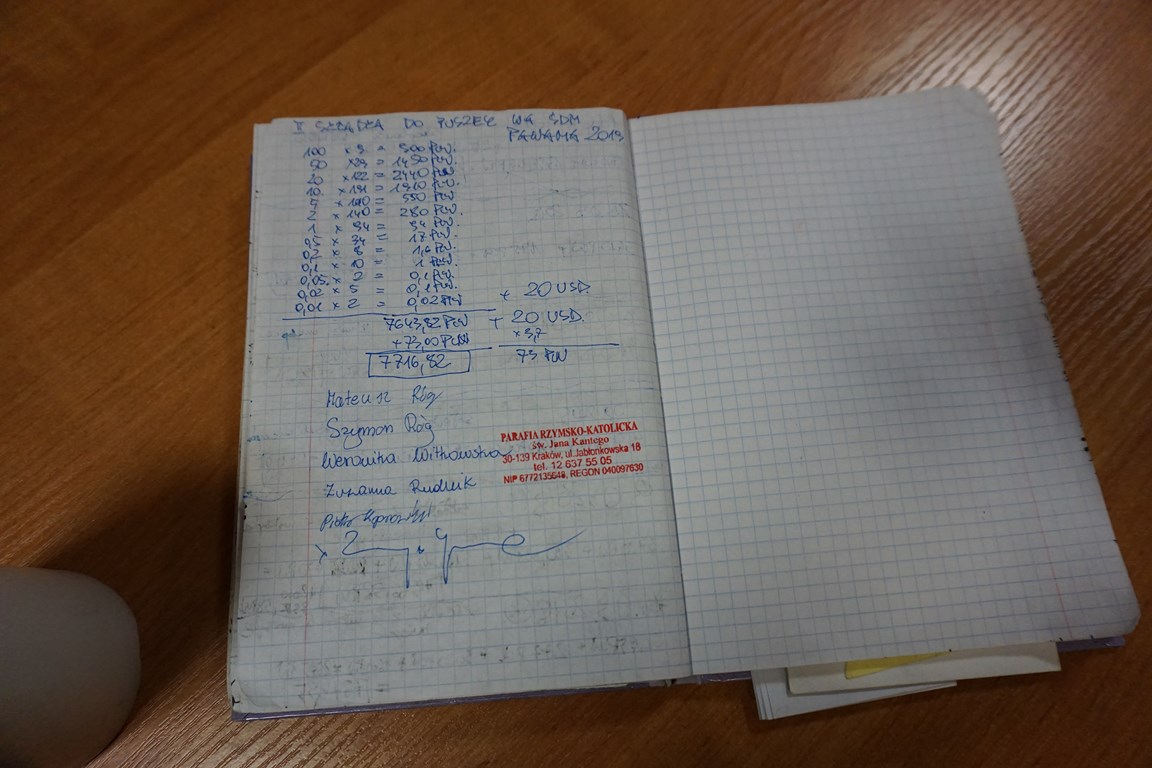 V SKŁADKA DO PUSZEK NA ŚDM
PANAMA 2019
100 × 9 = 900 PLN.
50 × 29 = 1450 PLN.
20 × 122 = 2440 PLN
10 × 191 = 1910 PLN.
5 × 110 = 550 PLN.
2 × 140 = 280 PLN.
1 × 94 = 94 PLN.
0,5 × 34 = 17 PLN.
0,2 × 8 = 1,6 PLN.
0,1 × 10 = 1 PLN.
0,05 × 2 = 0,1 PLN.
0,02 × 5 = 0,1 PLN.
0,01 × 2 = 0,02 PLN
+ 20 USD.
7643,82 PLN
+ 20 USD.
+73,00 PLN
× 3,7
7716,82
73 PLN
Mateusz Róg
Szymon Róg
Weronika Witkowska
Zuzanna Rudnik
Piotr
PARAFIA RZYMSKO-KATOLICKA
św. Jana Kantego
30-139 Kraków, ul. Jabłonkowska 18
tel. 12 637 55 05
NIP 6772135648, REGON 040097630